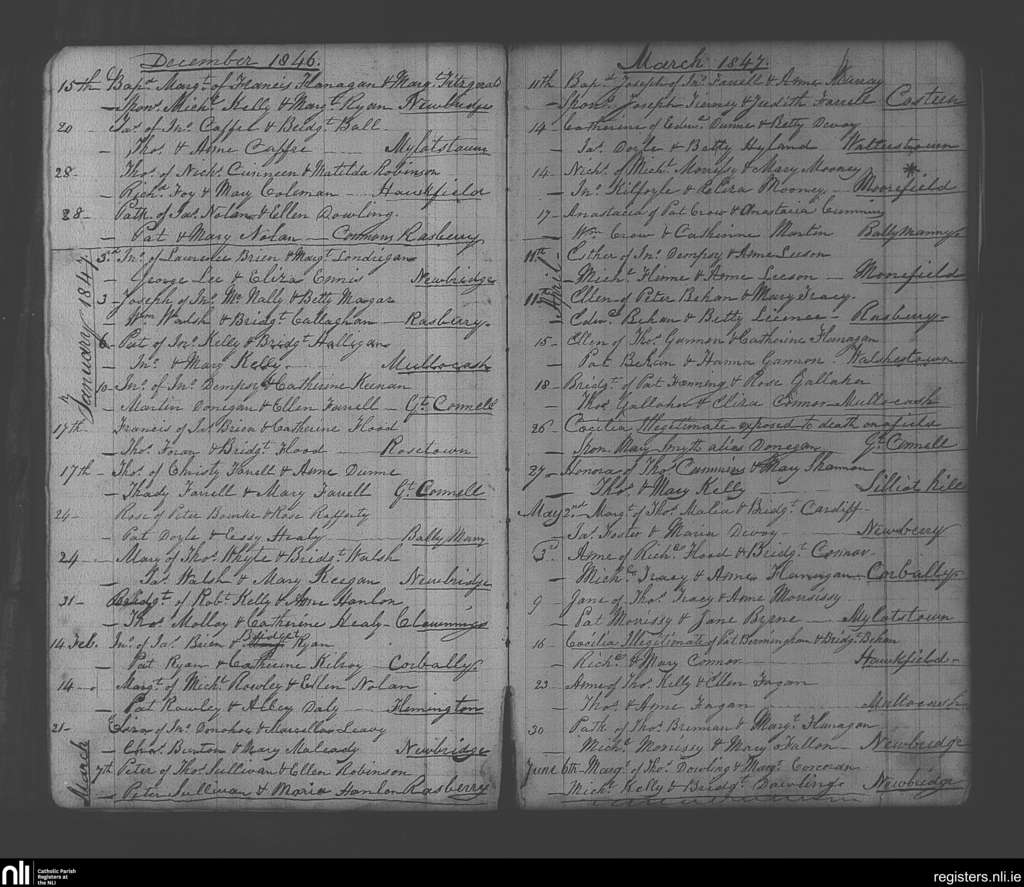 December 1846.
15th Bapt. Margt. of Francis Flanagan & Margt. Fitzgerald
Spon. Michl. Kelly & Margt. Ryan Newbridge
20 Jas. of Jno. Caffre & Bridgt. Ball
Thos. & Anne Caffre Mylotstown
28 Thos. of Nichs. Cunneen & Matilda Robinson
Richd. Foy & Mary Coleman Hawkfield
28 Patk. of Jas. Nolan & Ellen Dowling.
Pat & Mary Nolan Commons Rasberry
January 1847
3d. Jno. of Lawrence Brien & Margt. Londrigan
George Lee & Eliza Ennis Newbridge
3 Joseph of Jno. Mc Nally & Betty Magar
Wm Walsh & Bridgt. Callaghan Rasberry
6 Pat of Jno. Kelly & Bridgt. Halligan
Jno. & Mary Kelly. Mullocash
10 Jno. of Jno. Dempsy & Catherine Keenan
Martin Donegan & Ellen Farrell Gt. Connell
17th Francis of Jas. Brien & Catherine Flood
Thos. Foran & Bridgt. Flood Rosetown
17th Thos. of Christy Farrell & Anne Dunne
Thady Farrell & Mary Farrell Gt. Connell
24 Rose of Peter Bourke & Rose Rafferty
Pat Doyle & Essy Healy Bally Many
24 Mary of Thos. Whyte & Bridgt. Walsh
Jas. Walsh & Mary Keegan Newbridge
31 Bridgt. of Robt. Kelly & Anne Hanlon
Thos. Molloy & Catherine Healy Clownings
14 Feb. Jno. of Jas. Brien & Bridget Ryan
Pat Ryan & Catherine Kilroy Corbally
14 Margt. of Michl. Rowley & Ellen Nolan
Pat Rowley & Abbey Daly Flemington
21 Eliza of Jno. Donohoe & Marcella Leavy
Chas. Burton & Mary Maleady Newbridge
March
7th Peter of Thos. Sullivan & Ellen Robinson
Peter Sullivan & Maria Hanlon Rasberry
March 1847.
11th Bapt. Joseph of Jno. Farrell & Anne Murray
Spons. Joseph Tierney & Judith Farrell
14 Catherine of Edwd. Dunne & Betty Devoy
Jas. Doyle & Betty Hyland Walterstown
14 Nichs. of Michl. Morrissy & Mary Mooney *
Jno. Kilfoyle & Eliza Mooney Moorefield
17 Anastacia of Pat Crow & Anastacia Cummins
Wm. Crow & Catherine Martin Ballymanny
April
11th Esther of Jno. Dempsy & Anne Leeson
Michl. Hume & Anne Leeson Moorefield
11th Ellen of Peter Behan & Mary Tracy.
Edwd. Behan & Betty Rasberry
15 Ellen of Thos. Gannon & Catherine Flanagan
Pat Behan & Hanna Gannon Walshestown
18 Bridgt. of Pat Fleming & Rose Gallaher
Thos Gallaher & Eliza Connor Mullocash
26 Cecilia Illegitimate exposed to death on a field
Spon. Mary Smyth alias Donegan Gt. Connell
27 Honora of Thos. Cummins & Mary Shannon
Thos. & Mary Kelly Silliot hill
May 2nd Margt. of Thos. Malia & Bridgt. Cardiff
Jas. Foster & Maria Devoy Newberry
3d Anne of Richd. Flood & Bridgt. Connor
Michl. Tracy & Anne Flanigan Corbally
9 Jane of Thos. Tracy & Anne Morrissy
Pat Morrissy & Jane Byrne Mylotstown
16 Cecilia Illegitimate of Pat Bermingham & Bridgt. Behan
Richd. & Mary Connor Hawkfield
23 Anne of Thos. Kelly & Ellen Fagan
Thos. & Anne Fagan Mullocash
30 Patk. of Thos. Brennan & Margt. Flanagan
Michl. Morrissy & Mary Fallon Newbridge
June 6th Margt. of Thos. Dowling & Margt. Corcoran
Michl. Kelly & Bridgt. Dowling. Newbridge
nli Catholic Parish Registers at the NLI
registers.nli.ie